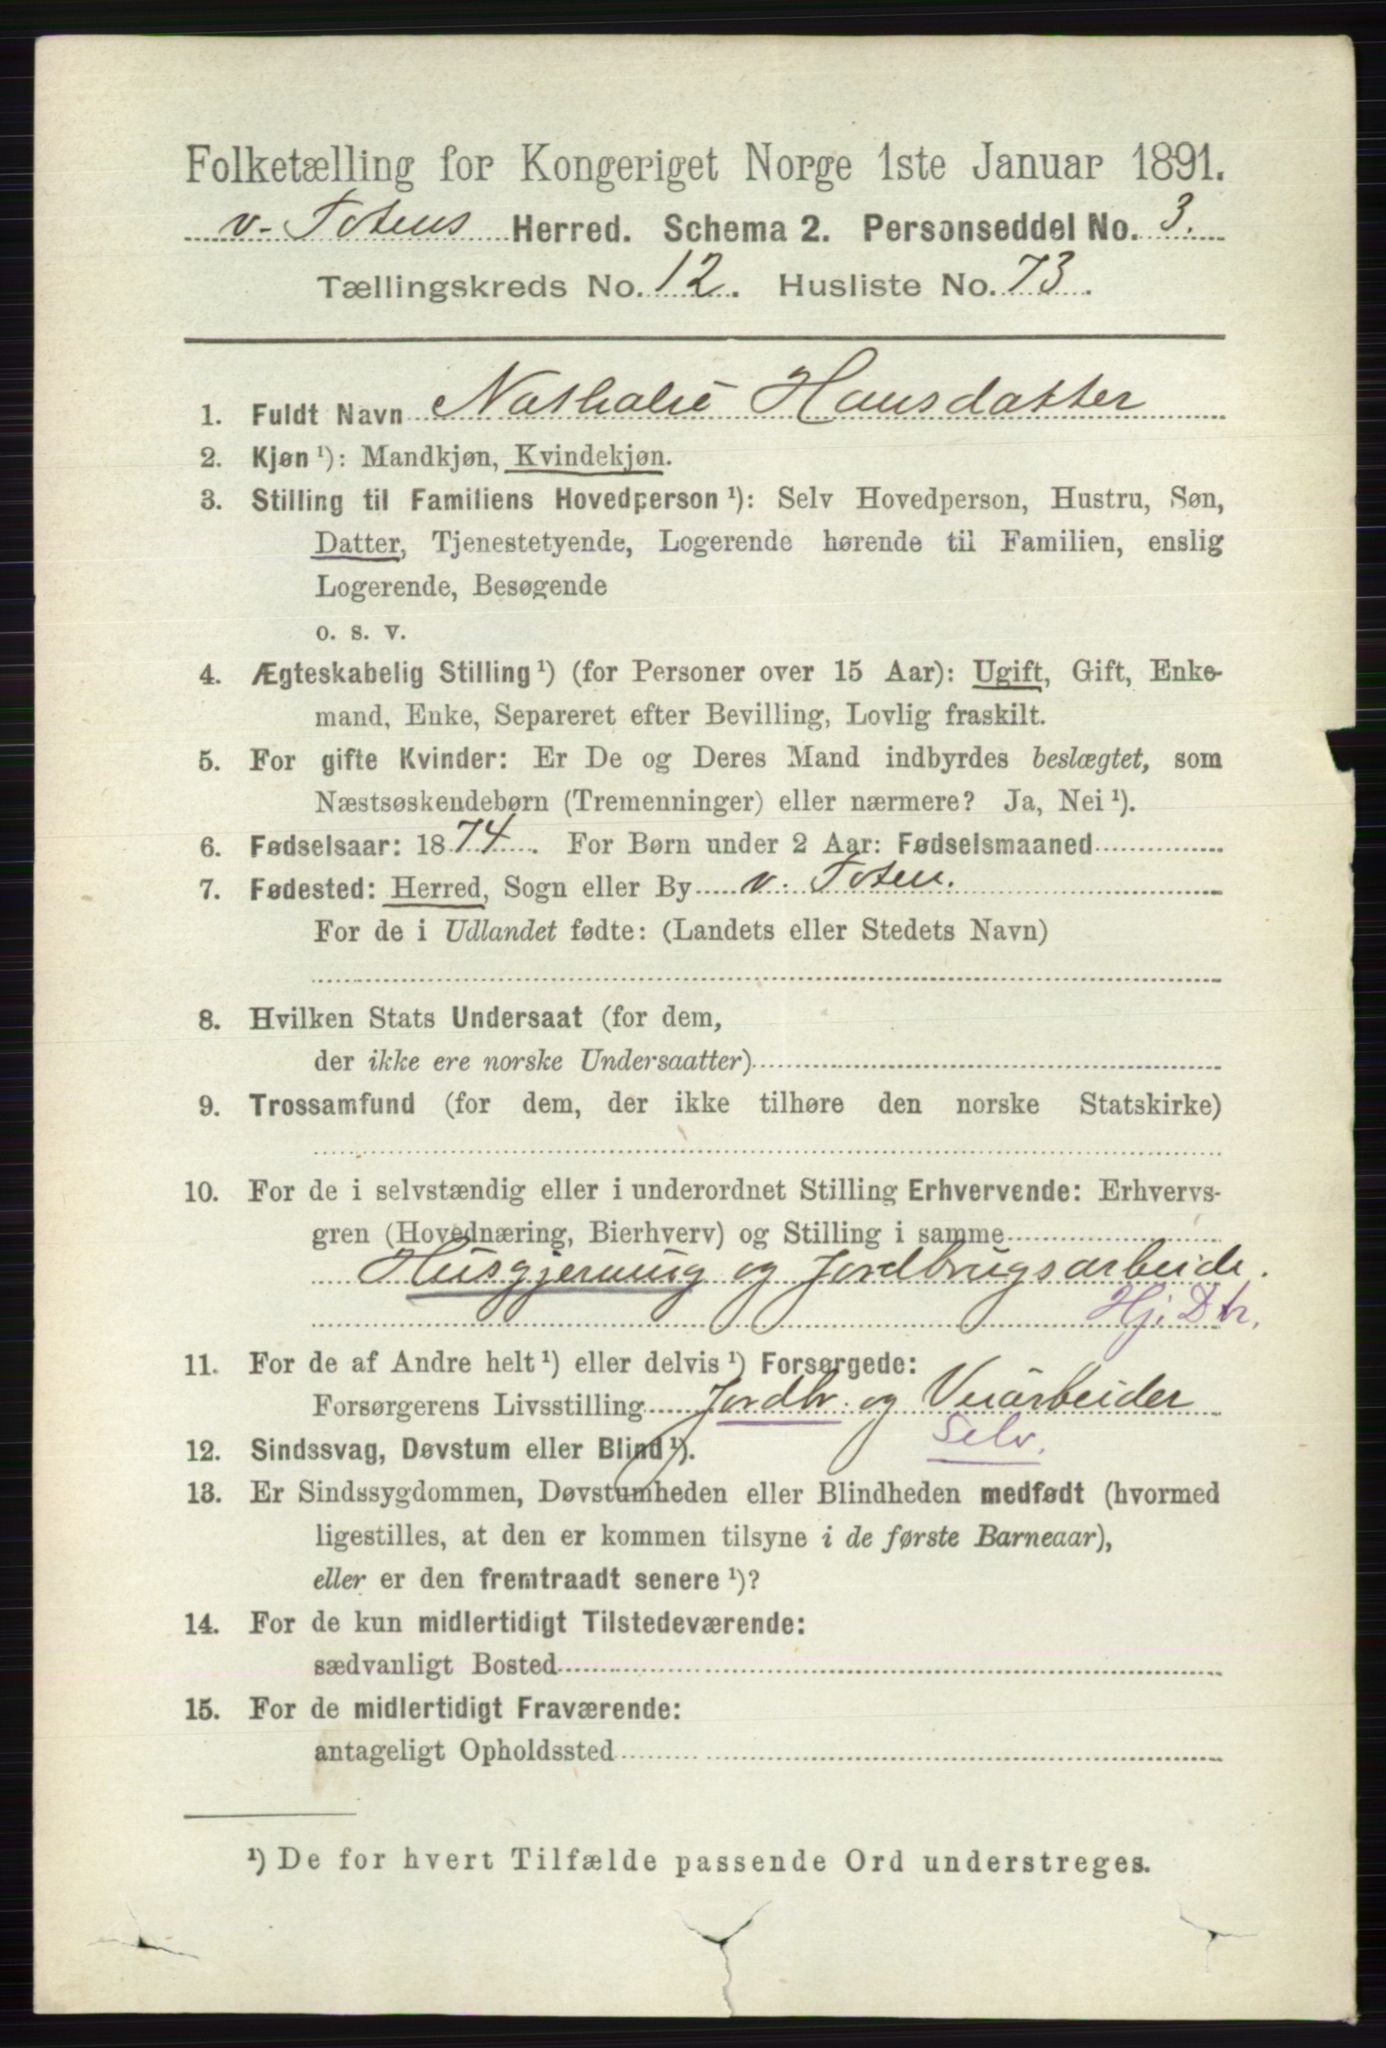 Folketælling for Kongeriget Norge 1ste Januar 1891.
v. Totens Herred. Schema 2. Personseddel No. 3.
Tællingskreds No. 12. Husliste No. 73.
1. Fuldt Navn Nathalie Hansdatter
2. Kjøn ¹): Mandkjøn, Kvindekjøn.
3. Stilling til Familiens Hovedperson ¹): Selv Hovedperson, Hustru, Søn,
Datter, Tjenestetyende, Logerende hørende til Familien, enslig
Logerende, Besøgende
o. s. v.
4. Ægteskabelig Stilling ¹) (for Personer over 15 Aar): Ugift, Gift, Enke-
mand, Enke, Separeret efter Bevilling, Lovlig fraskilt.
5. For gifte Kvinder: Er De og Deres Mand indbyrdes beslægtet, som
Næstsøskendebørn (Tremenninger) eller nærmere? Ja, Nei ¹).
6. Fødselsaar: 1874. For Børn under 2 Aar: Fødselsmaaned
7. Fødested: Herred, Sogn eller By v. Toten.
For de i Udlandet fødte: (Landets eller Stedets Navn)
8. Hvilken Stats Undersaat (for dem,
der ikke ere norske Undersaatter)
9. Trossamfund (for dem, der ikke tilhøre den norske Statskirke)
10. For de i selvstændig eller i underordnet Stilling Erhvervende: Erhvervs-
gren (Hovednæring, Bierhverv) og Stilling i samme
Husgjerning og Jordbrugsarbeide.
Hj. Dtr.
11. For de af Andre helt ¹) eller delvis ¹) Forsørgede:
Forsørgerens Livsstilling Jordbr. og Veiarbeider
Selv.
12. Sindssvag, Døvstum eller Blind ¹).
13. Er Sindssygdommen, Døvstumheden eller Blindheden medfødt (hvormed
ligestilles, at den er kommen tilsyne i de første Barneaar),
eller er den fremtraadt senere ¹)?
14. For de kun midlertidigt Tilstedeværende:
sædvanligt Bosted
15. For de midlertidigt Fraværende:
antageligt Opholdssted
¹) De for hvert Tilfælde passende Ord understreges.